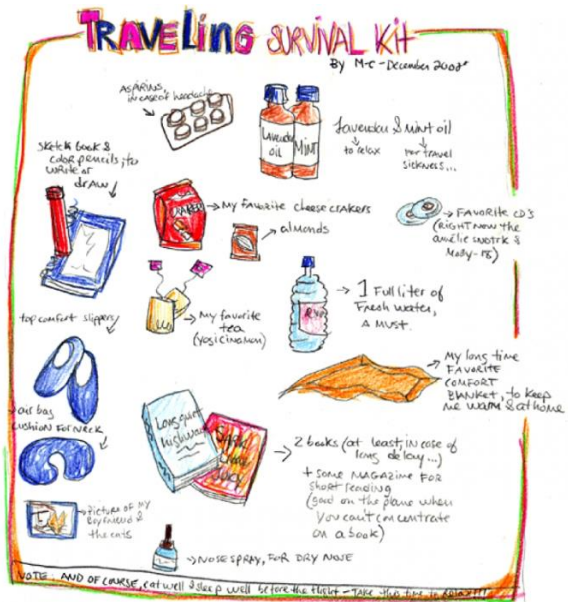 TRAVELING SURVIVAL KIT
By M-C - December 2002
ASPIRINS,
in case of headache
Lavender
oil
MINT
Lavender & mint oil
to relax
for travel
sickness...
Sketch book &
color pencils, to
write or
draw
CRAKERS
My favorite cheese crakers
almonds
FAVORITE CD'S
(RIGHT NOW THE
amélie sndtrk &
Moby-18)
My favorite
tea
(yogi cinamon)
1 Full liter of
Fresh water,
A MUST.
top comfort slippers
My long time
FAVORITE
COMFORT
BLANKET, to keep
me warm & at home
air bag
cushion for neck
Long quiet
highway
2 books (at least, in case of
long delay...)
+ some MAGAZINE FOR
short reading
(good on the plane when
you can't concentrate
on a book)
Picture of my
Boyfriend &
the cats
NOSE SPRAY, FOR DRY NOSE
NOTE: AND OF COURSE, eat well & sleep well before the flight - Take this time to RELAX!!!